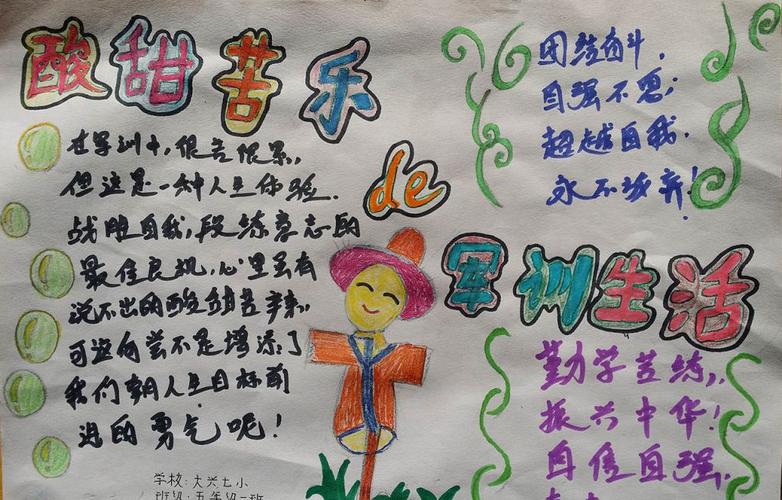 酸甜苦乐
de
军训生活
在军训中，很苦很累，
但这是一种人生体验，
战胜自我，段练意志的
最佳良机，心里虽有
说不出的酸甜苦辣，
可这何尝不是增添了
我们朝人生目标前
进的勇气呢！
学校：大兴七小
班级：五年级一班
团结奋斗，
自强不息；
超越自我，
永不放弃！
勤学苦练，
振兴中华！
自信自强，